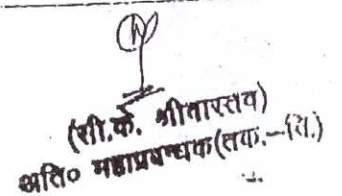 (सी.के. श्रीवास्तव)
अति० महाप्रबन्धक(तक.-सि.)